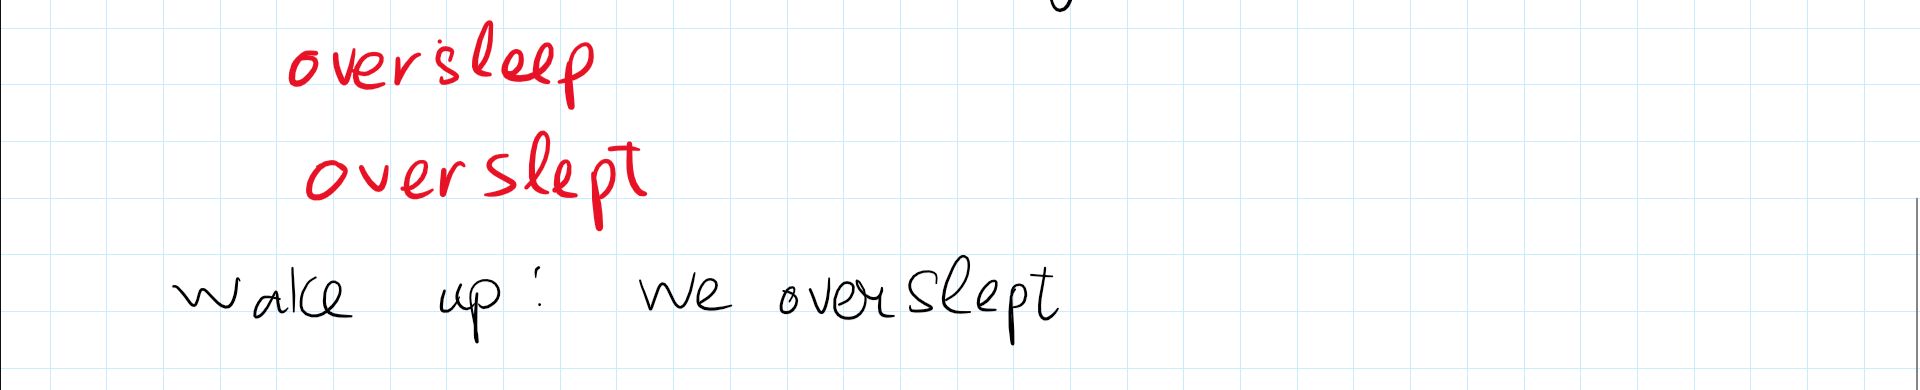 oversleep
overslept
wake up! we overslept